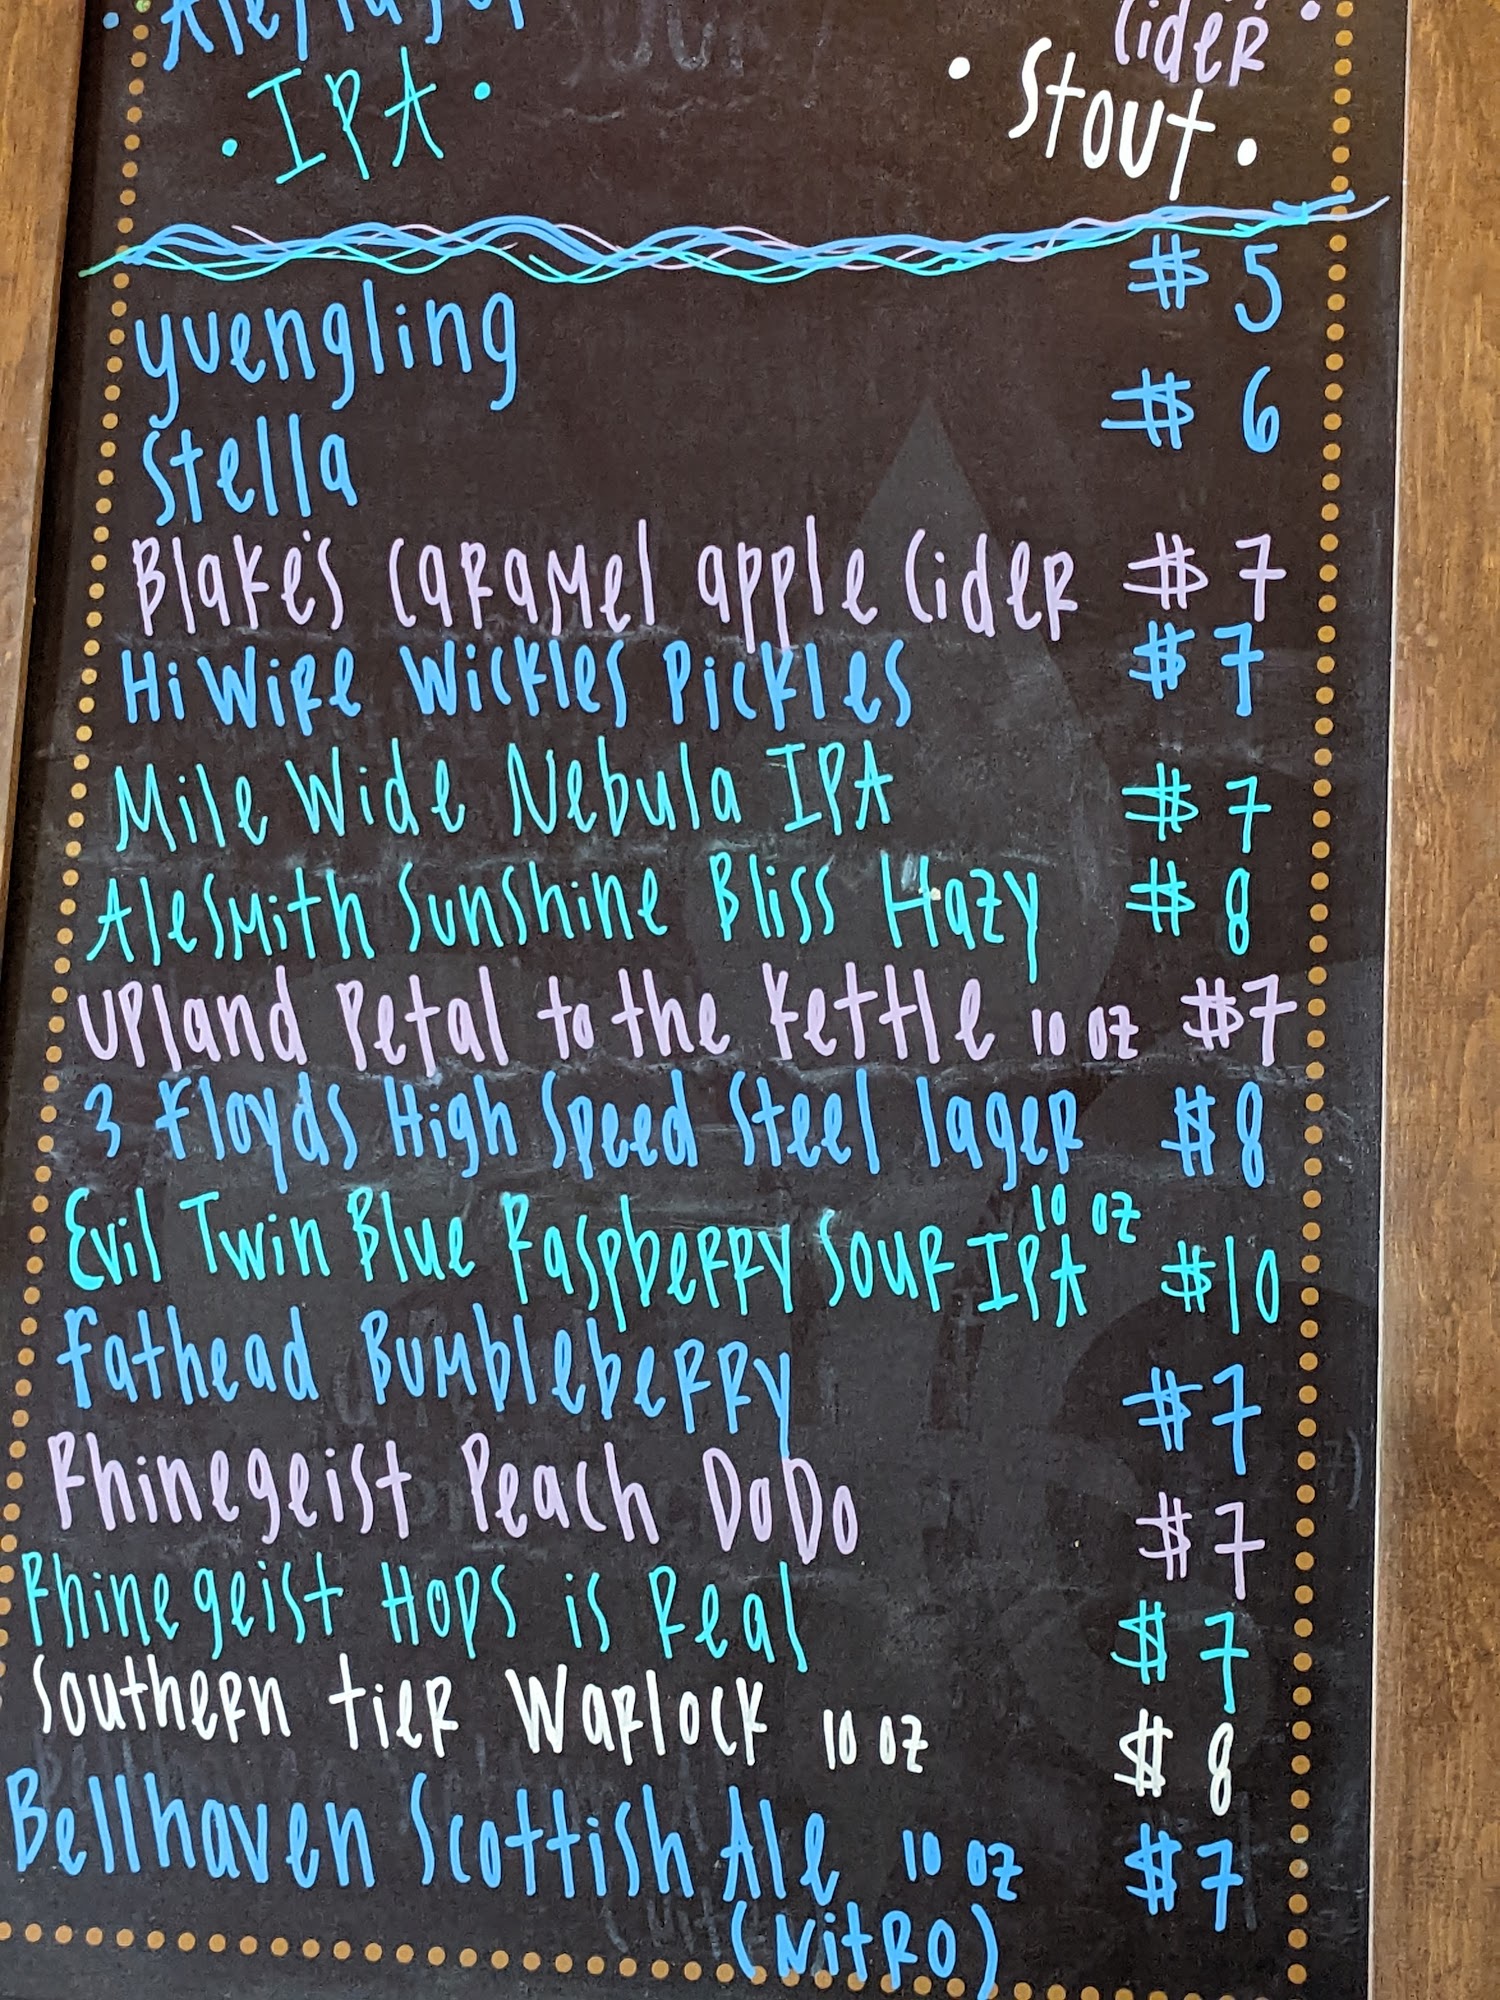 IPA
Cider
Stout
yuengling $5
Stella $6
Blake's Caramel apple Cider $7
Hi Wire Wickles Pickles $7
Mile Wide Nebula IPA $7
Alesmith Sunshine Bliss Hazy $8
Upland Petal to the Kettle 10 oz $7
3 Floyds High Speed Steel lager $8
Evil Twin Blue Raspberry Sour IPA 10 oz $10
Fathead Bumbleberry $7
Rhinegeist Peach DoDo $7
Rhinegeist Hops is Real $7
Southern Tier Warlock 10 oz $8
Bellhaven Scottish Ale 10 oz $7
(Nitro)